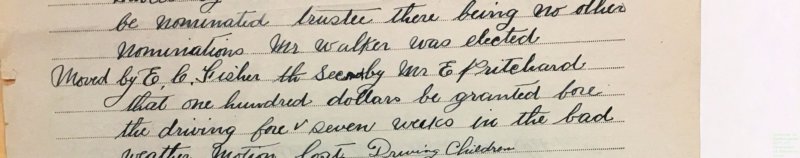 be nominated trustee there being no other
nominations Mr Walker was elected
Moved by E. C. Fisher th Secondby Mr E Pritchard
that one hundred dollars be granted fore
the driving fore seven weeks in the bad
weather Motion lost Driving Children